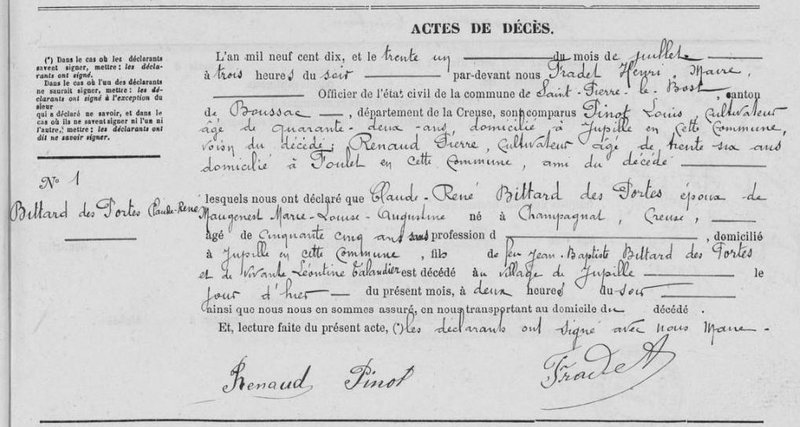 ACTES DE DÉCÈS.
(*) Dans le cas où les déclarants
savent signer, mettre : les décla-
rants ont signé.
Dans le cas où l'un des déclarants
ne saurait signer, mettre : les dé-
clarants ont signé à l'exception du
sieur
qui a déclaré ne savoir, et dans le
cas où ils ne savent signer ni l'un ni
l'autre, mettre : les déclarants ont
dit ne savoir signer.
N° 1
Bittard des Portes Claude-René
L'an mil neuf cent dix, et le trente un du mois de juillet
à trois heures du soir par-devant nous Fradet Henri, Maire,
Officier de l'état civil de la commune de Saint-Pierre-le-Bost, canton
de Boussac, département de la Creuse, sont comparus Pinot Louis Cultivateur
âgé de quarante-deux-ans, domicilié à Jupille en cette Commune,
voisin du décédé; Renaud Pierre, Cultivateur âgé de trente six ans
domicilié à Poulet en cette Commune, ami du décédé
lesquels nous ont déclaré que Claude-René Bittard des Portes époux de
Maugenest Marie-Louise-Augustine né à Champagnat, Creuse,
âgé de cinquante cinq ans sans profession d , domicilié
à Jupille en cette Commune, fils de feu Jean-Baptiste Bittard des Portes
et de vivante Léontine Talandier est décédé au village de Jupille le
jour d'hier du présent mois, à deux heures du soir
ainsi que nous nous en sommes assuré, en nous transportant au domicile du décédé.
Et, lecture faite du présent acte, (*) les déclarants ont signé avec nous Maire.
Renaud Pinot Fradet